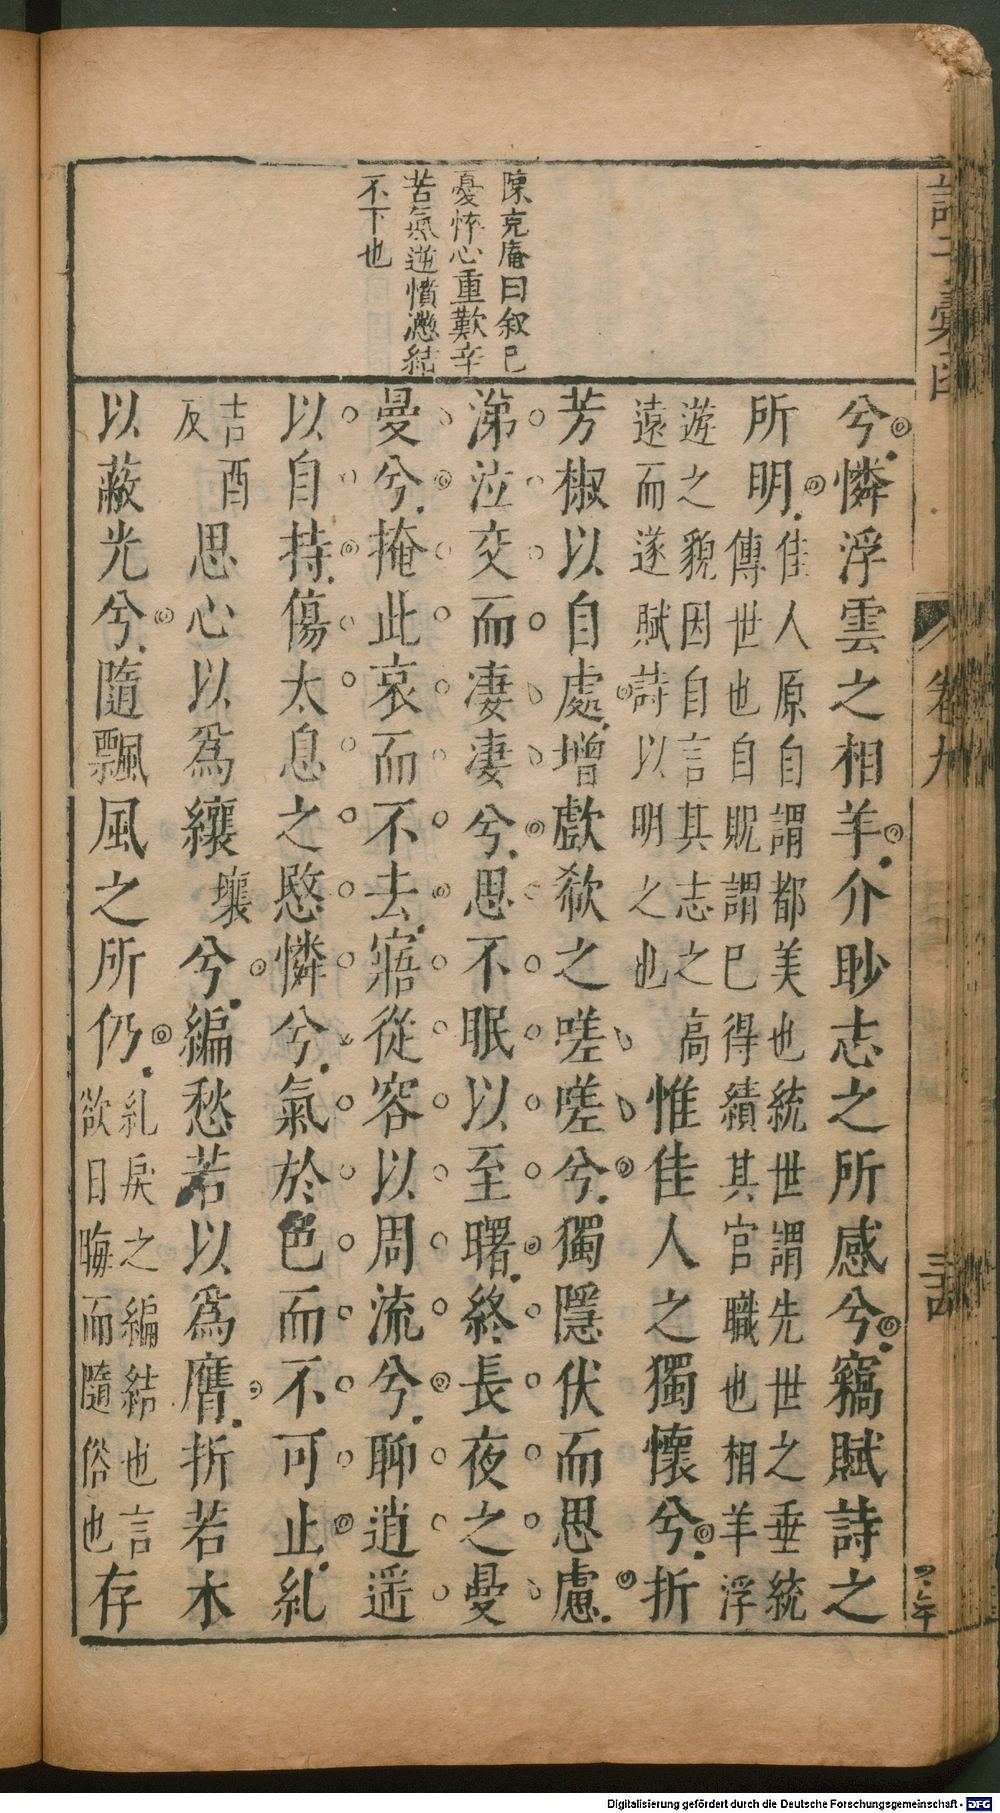 陳克庵曰叙已
憂悴心重歎辛
苦氣逆憤懣結
不下也
兮憐浮雲之相羊介眇志之所感兮竊賦詩之
所明佳人原自謂都美也統世謂先世之垂統
傳世也自貺謂已得績其官職也相羊浮
遊之貌因自言其志之高
遠而遂賦詩以明之也
惟佳人之獨懷兮折
芳椒以自處增歔欷之嗟嗟兮獨隱伏而思慮
涕泣交而淒淒兮思不眠以至曙終長夜之曼
曼兮掩此哀而不去寤從容以周流兮聊逍遥
以自持傷太息之愍憐兮氣於邑而不可止糺
吉酉
反
思心以爲纕壤兮編愁若以爲膺折若木
以蔽光兮隨飄風之所仍糺戾之編結也言
欲日晦而隨俗也
存
卷九
Digitalisierung gefördert durch die Deutsche Forschungsgemeinschaft - DFG